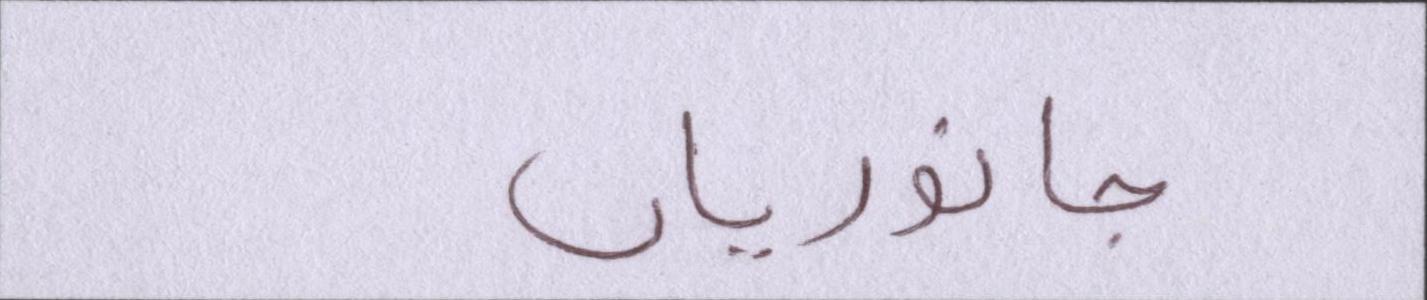 جانوریاں